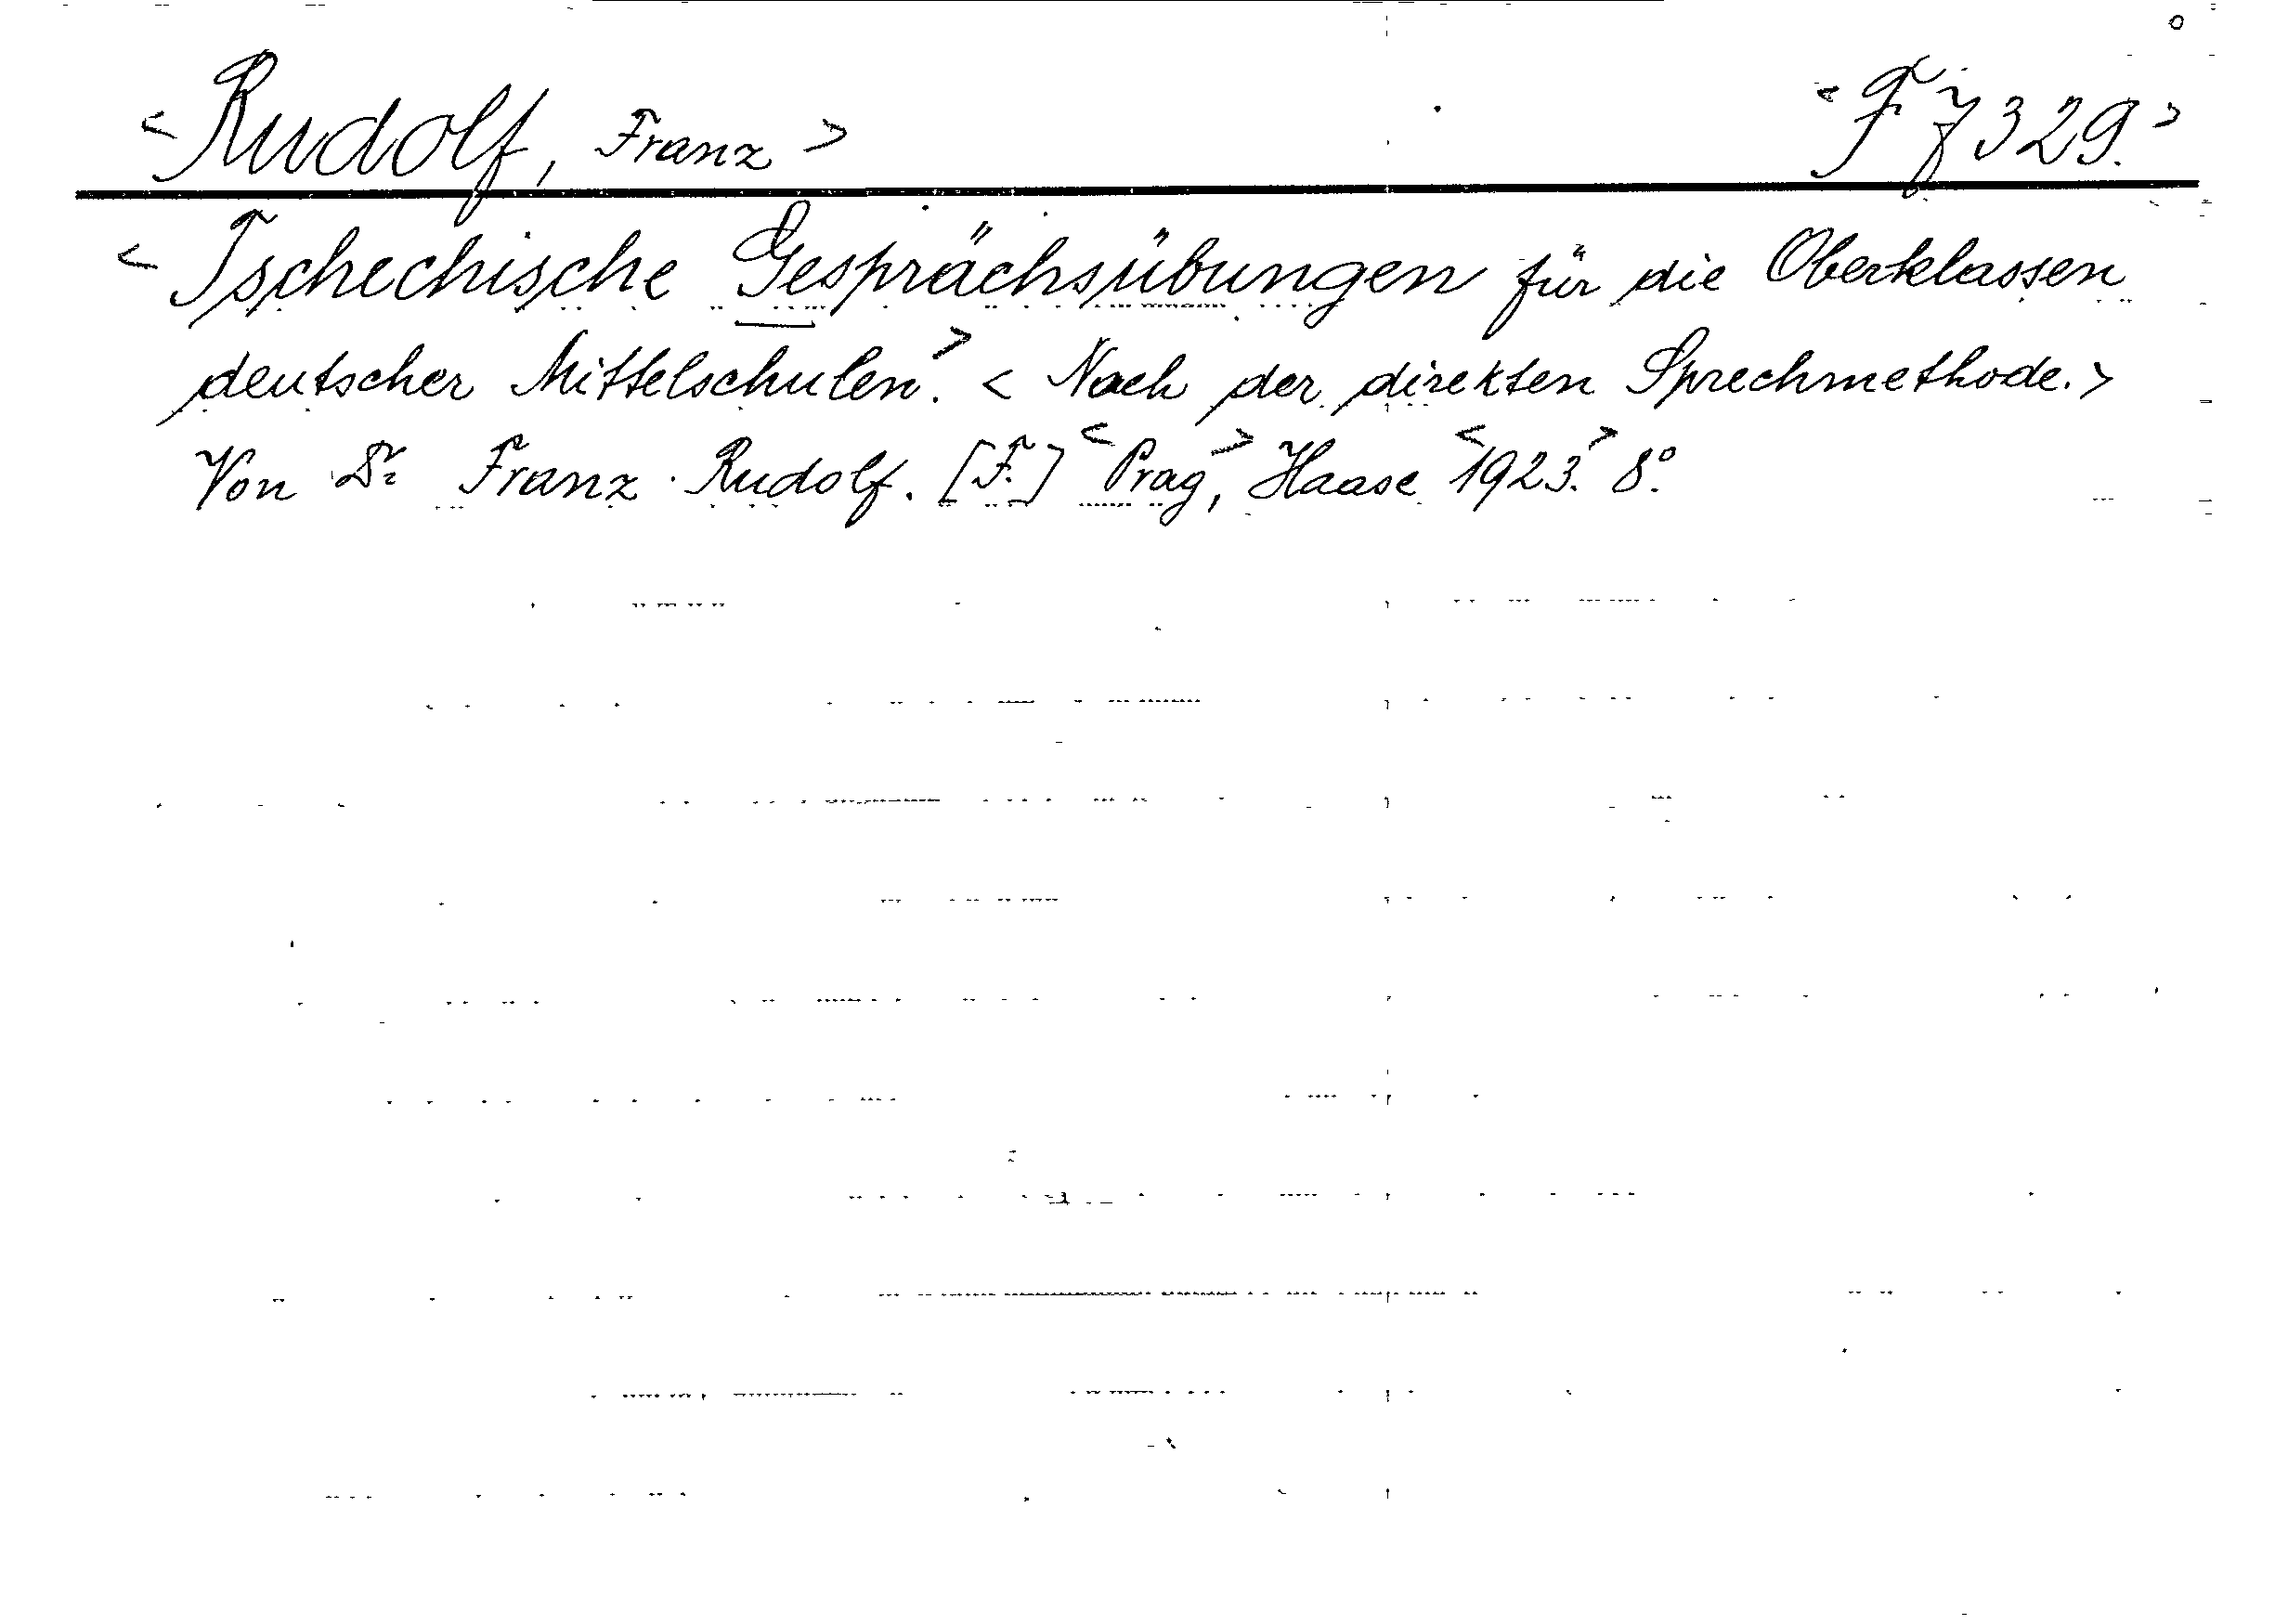 <Rudolf, Franz> <F 7329.>
<Tschechische Gesprächsübungen für die Oberklassen
deutscher Mittelschulen.> <Nach der direkten Sprechmethode.>
Von Dr. Franz Rudolf. [F.] <Prag,> Haase <1923.> 8.°